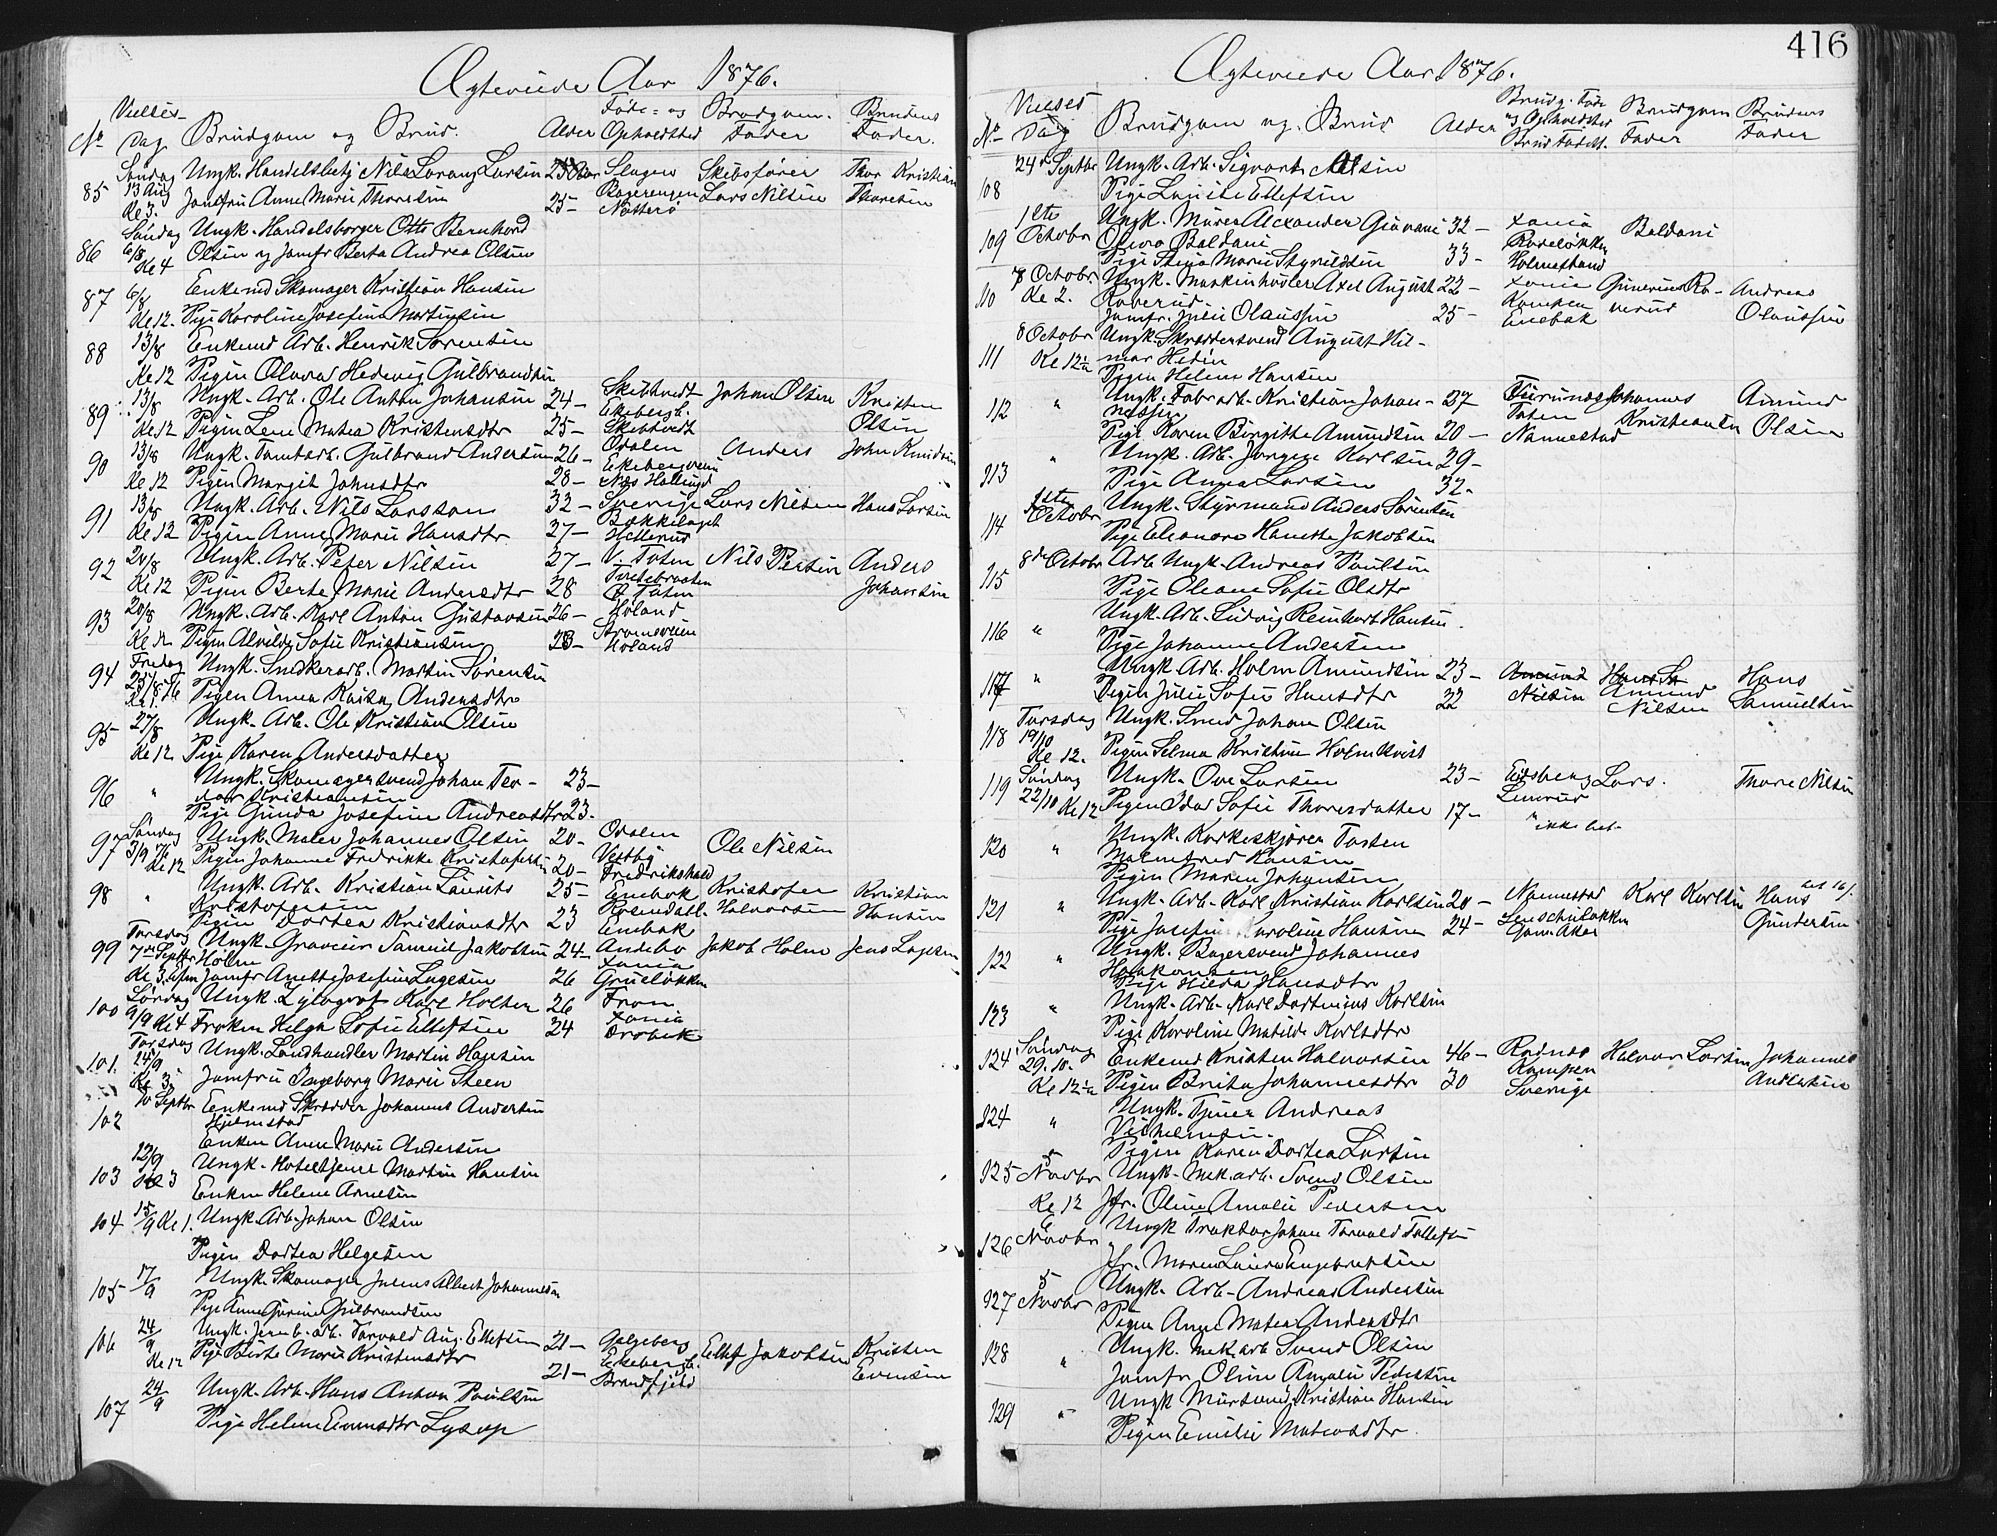 Ægteviede Aar 1876.
No Vielses Dag. Brudgom og Brud. Alder Føde- og Opholdsted Brudgom. Fader Brudens Fader.
85 Søndag 13 Aug Kl 3. Ungk. Handelsbetj Nils Laurang Larsen Slagen Skibsfører Thor Kristian
Jomfru Anne Marie Thoresen 25- Nøtterø Lars Nilsen Thoresen
86 Søndag 6/8 Kl 4 Ungk. Handelsborger Otto Bernhard
Olsen og Jomfr Berta Andrea Olsen
87 6/8 Kl 12. Enkemd Skomager Kristian Hansen
Pige Karoline Josefine Martinsen
88 13/8 Kl 12 Enkemd Arb. Henrik Sørensen
Pigen Olava Hedevig Gulbrandsen
89 13/8 Kl 12 Ungk. Arb. Ole Anton Johansen 24- Skibtvedt Johan Olsen Kristen
Pigen Lene Matea Kristensdtr 25- Ekebergb. Skibtvedt Olsen
90 13/8 Kl 12 Ungk. Tomtarb. Gulbrand Andersen 26- Odalen Anders John Knudsen
Pigen Margit Johnsdtr 28- Ekebergveien Næs Hallingd
91 13/8 Kl 12 Ungk. Arb. Nils Larsson 32- Sverige Lars Nilsen Hans Larsen
Pigen Anne Marie Hansdtr 37- Bækkelaget
92 20/8 Kl 12 Ungk. Arb. Peter Nilsen 27- V. Toten Nils Persen Anders
Pigen Berte Marie Andersdtr 28 Ø Toten Johansen
93 20/8 Ungk. Arb. Karl Anton Gustavsen 26- Høland
Pigen Alvilde Sofie Kristiansen 28- Strømsveien Høland
94 Fredag 25/8 76 Kl 1. Ungk. Snedkerarb. Martin Sørensen
Pigen Anna Kaisa Andersdtr
95 27/8 Kl 12 Ungk. Arb. Ole Kristian Olsen
Pige Karen Andersdatter
96 " Ungk. Skomagersvend Johan Teo- 23-
dor Kristiansen
Pige Gunda Josefine Andreasdtr 23-
97 Søndag 3/9 76 Kl 12 Ungk. Maler Johannes Olsen 20- Odalen Ole Nilsen
Pigen Johanne Fredrikke Kristofersen 20- Vestby Fredrikshald
98 " Ungk. Arb. Kristian Laurits 25- Enebak Kristofer Kristian
Kristofersen Rosendall. Halvorsen Hansen
Pigen Dortea Kristiansdtr 23 Enebak
99 Torsdag 7de Septbr Kl 3. Efm Ungk. Graveur Samuel Jakobsen 24- Andebo Jakob Holm Jens Lagesen
Holm Xania
Jomfr Anette Josefine Lagesen 26 Grüsløkken
100 Lørdag 9/9 Kl 4 Ungk. Xylograf Karl Holter 26 Fron
Frøken Helga Sofie Ellefsen 24 Xania Drøbak
101. Torsdag 14/9 Kl 3. Ungk. Landhandler Martin Hansen
Jomfru Ingeborg Marie Steen
102 10 Septbr Enkemd Skrædder Johannes Andersen
Hjelmstad
Enken Anne Marie Andersen
103 12/9 Kl 3 Ungk. Hoteltjener Martin Hansen
Enken Helene Arnesen
104 15/9 Kl 1. Ungk. Arb. Johan Olsen
Pigen Dortea Helgesen
105 17/9 Ungk. Skomager Julius Albert Johannesen
Pige Anne Gurine Gulbrandsen
106 24/9 Kl 12 Ungk. Jernb. arb. Torvald Aug. Ellefsen 21- Galgeberg Ellef Jakobsen Kristen
Pige Dorte Marie Kristensdtr 21- Ekebergb. Evensen
107 24/9 Ungk. Arb. Hans Anton Poulsen
Pige Helene Evensdtr Lysop
416
Ægteviede Aar 1876.
No Vielses Dag Brudgom og Brud Alder Brudg. Føde og Opholdsted Brud Fødest. Brudgom Fader Brudens Fader
108 24d Septbr Ungk. Arb. Sigvart Nilsen
Pige Laurite Ellefsen
109 1ste Octobr Ungk. Murer Alexander Giovani 32- Xania Baldani
Olivo Baldani Rodeløkken
Pige Stina Marie Styrildsen 33- Holmestrand
110 8 Octobr Kl 2. Ungk. Maskinhøvler Axel August 22- Xania Gunerius Ra- Andreas
Raverud Kampen verud Olaussen
Jomfr. Julie Olaussen 25- Enebak
111 8 Octobr Kl 12½ Ungk. Skræddersvend August Hil-
mar Hedin
Pigen Helene Hansen
112 " Ungk. Fabrarb. Kristian Johan- 27 Johannes Amund
nessen Toten Kristiansen Olsen
Pige Karen Birgitte Amundsen 20- Nannestad
113 " Ungk. Arb. Jørgen Karlsen 29-
Pige Anna Larsen 32-
114 1ste Octobr Ungk. Styrmand Anders Sørensen
Pige Eleonore Hanette Jakobsen
115 8de Octobr Arb Ungk. Andreas Poulsen
Pige Oleane Sofie Olsdtr
116 " Ungk. Arb. Ludvig Reinhart Hansen
Pige Johanne Andersen
117 " Ungk Arb. Holm Amundsen 23- Amund Hans Hans
Pigen Julie Sofie Hansdtr 22 Nilsen Amund Nilsen Samuelsen
118 Torsdag 19/10 Kl 12. Ungk. Smed Johan Olsen
Pigen Selma Kristine Holmkvist
119 Søndag 22/10 Kl 12 Ungk. Ove Larsen 23- Eidsberg Lars. Thore Nilsen
Pigen Ida Sofie Thoresdatter 17- " ikke bet.
120 " Ungk. Korkeskjærer Torsten
Malmfred Hansen
Pigen Maren Johansen
121 " Ungk. Arb. Karl Kristian Karlsen 20- Nannestad Karl Karlsen Hans
Pige Josefine Karoline Hansen 24- Gam. Aker Gundersen
122 " Ungk. Bagersvend Johannes
Haakonsen
Pige Hilda Hansdtr
123 " Ungk. Arb. Karl Dortinius Karlsen
Pige Karoline Matilde Karlsdtr
124 Søndag 29. 10. Kl 12½ Enkemd Kristen Halvorsen 46- Rødnes Halvor Larsen Johannes
Pigen Brita Johannesdtr 30 Kampen Sverige Andersen
124 " Ungk. Tjener Andreas
Vilhelmsen.
Pigen Karen Dortea Larsen
125 5 Novbr Kl 12 Ungk. Mek. arb. Svend Olsen
Jfr. Oline Amalie Pedersen
126 6 Novbr Ungk Traktør Johan Torvald Tollefsen
Jfr. Maren Laura Engebretsen
127 5 Novbr Ungk. Arb. Andreas Andersen
Pigen Anne Matea Andersdtr
128 " Ungk. Mek. arb Svend Olsen
Jomfr Oline Amalie Pedersen
129 " Ungk Mursvend Kristian Hansen
Pigen Emilie Mateasdtr.